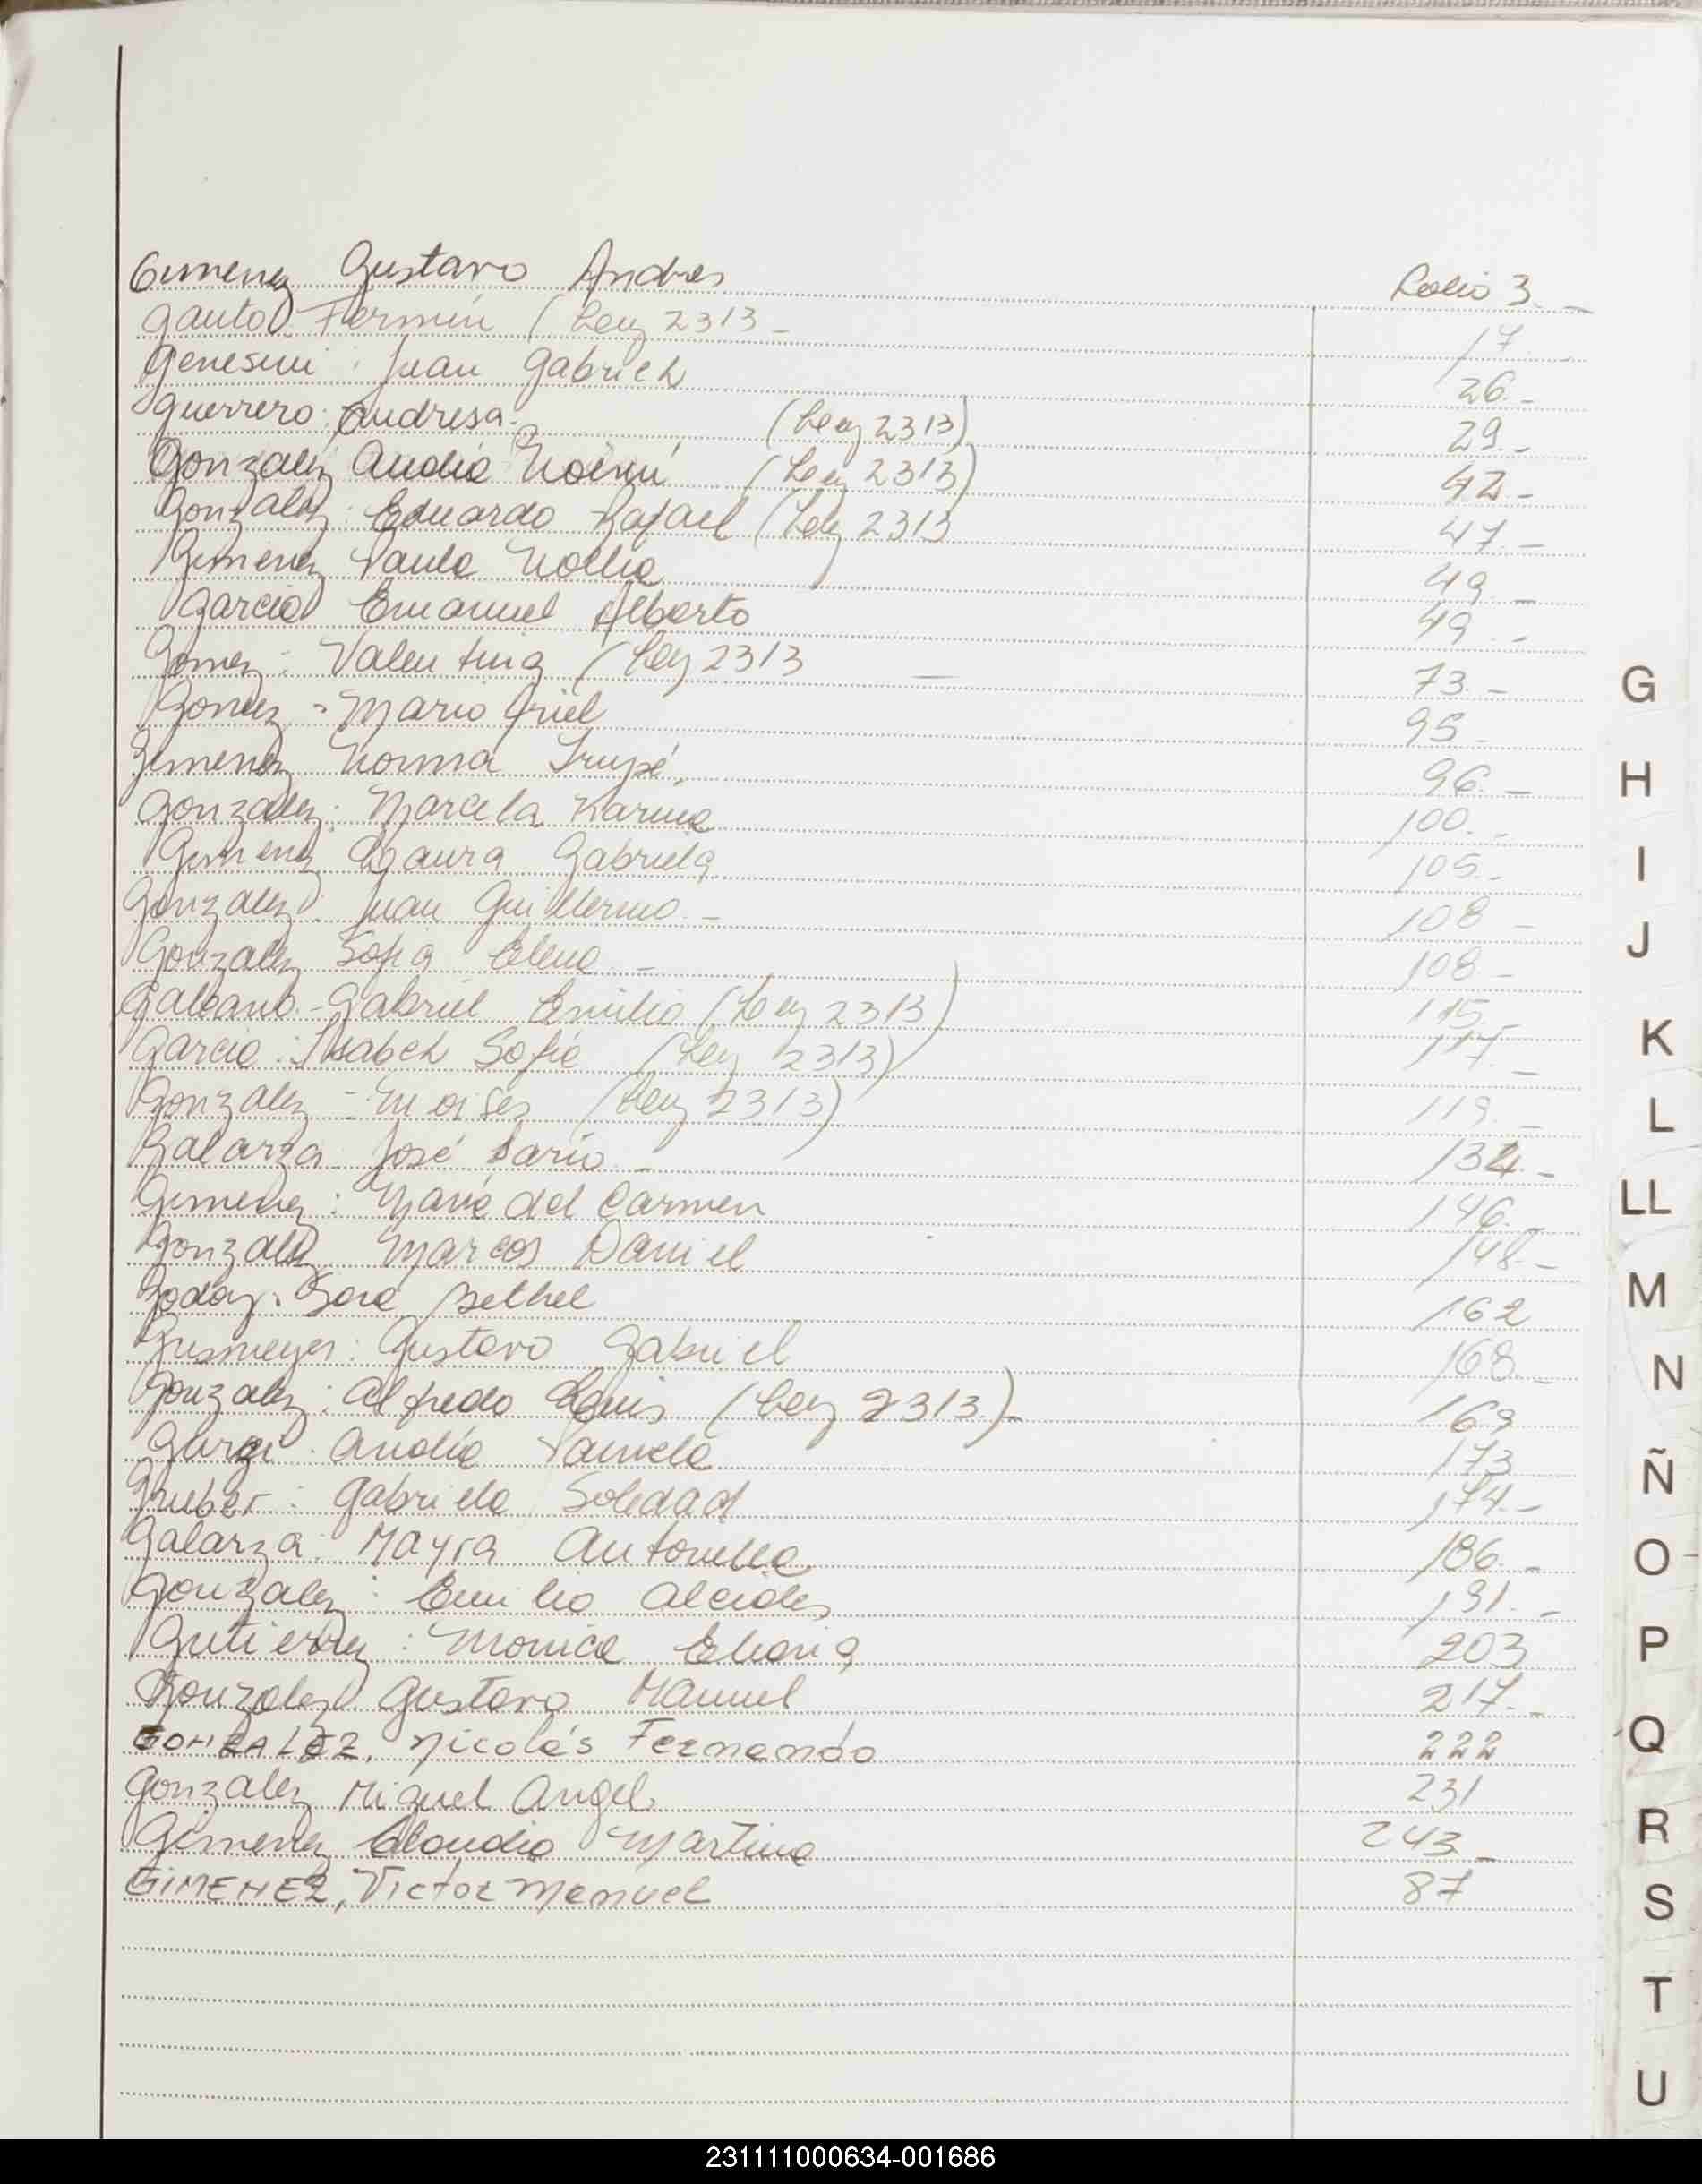 Gimenez Gustavo Andres Folio 3.-
Gauto Fermin (Ley 2313- 17.-
Genesini: Juan Gabriel 26.-
Guerrero: Andresa.- (Ley 2313) 29.-
Gonzalez Analia Noemí (Ley 2313) 42.-
Gonzalez: Eduardo Rafael (Ley 2313 47.-
Gimenez Paula Noelia 49.-
Garcia Emanuel Alberto 49.-
Gomez: Valentina (Ley 2313 73.-
Gomez - Mario Ariel 95.-
Gimenez Norma 96.-
Gonzalez: Marcela Karina 100.-
Gimenez Laura Gabriela 105.-
Gonzalez: Juan Guillermo.- 108.-
Gonzalez Sofia Elena.- 108.-
Galeano.- Gabriel Emilio (Ley 2313) 115.-
Garcia: Isabel Sofia (Ley 2313) 117.-
Gonzalez - Moises (Ley 2313) 119.-
Galarza José Dario.- 134.-
Gimenez: Maria del Carmen 146.-
Gonzalez Marcos Daniel 148.-
Godoy: Sara Bethel 162
Gustavo Gabriel 168.-
Gonzalez: Alfredo Luis (Ley 2313)- 169
Analía Pamela 173
Gruber: Gabriela Soledad 174.-
Galarza: Mayra Antonella 186.-
Gonzalez: Emilio Alcides 191.-
Gutierrez: Monica Eliana 203
Gonzalez Gustavo Manuel 217.-
GONZALEZ, Nicolás Fernando 222
Gonzalez Miguel Angel 231
Gimenez Claudia Martina 243-
GIMENEZ, Victor Manuel 87
G
H
I
J
K
L
LL
M
N
Ñ
O
P
Q
R
S
T
U
231111000634-001686